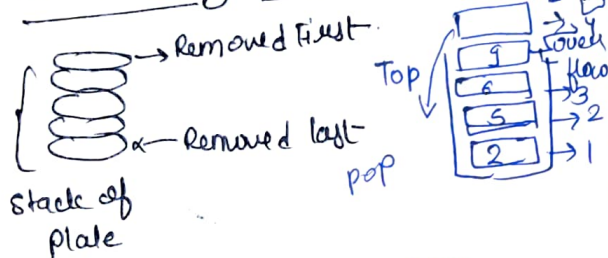 Removed First
Removed last
Stack of
Plate
Top
pop
9
6
5
2
over
flow
3
2
1